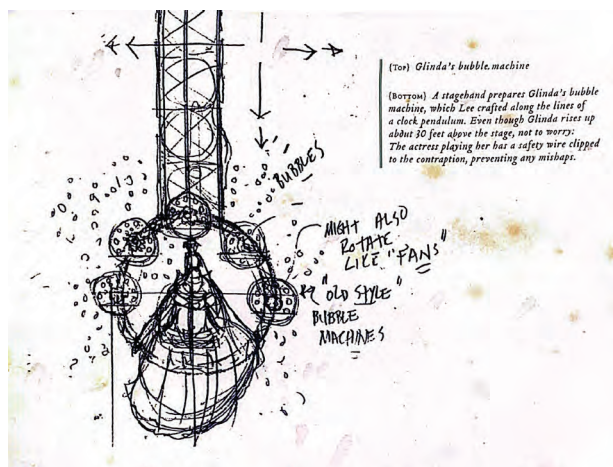 (Top) Glinda's bubble machine
(Bottom) A stagehand prepares Glinda's bubble
machine, which Lee crafted along the lines of
a clock pendulum. Even though Glinda rises up
about 30 feet above the stage, not to worry:
The actress playing her has a safety wire clipped
to the contraption, preventing any mishaps.
BUBBLES
MIGHT ALSO
ROTATE
LIKE "FANS"
"OLD STYLE"
BUBBLE
MACHINES